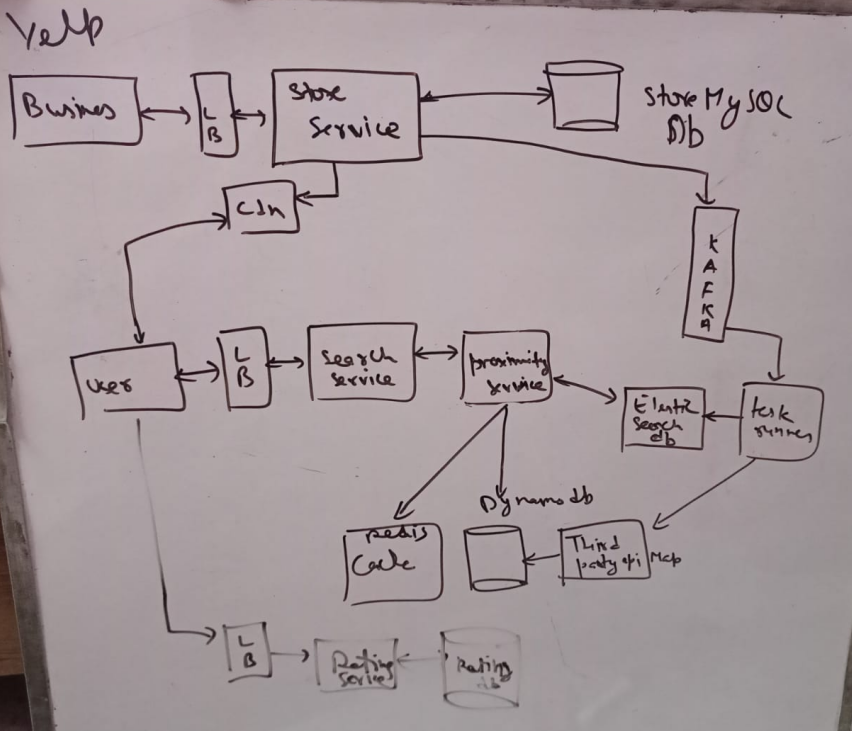 Yelp
Busines
L
B
Store
Service
Store MySQL
Db
Cdn
K
A
F
K
A
User
L
B
Search
service
proximity
service
Elastic
Search
db
task
runner
Dynamo db
Redis
Cache
Third
party api Map
L
B
Rating
Service
Rating
db